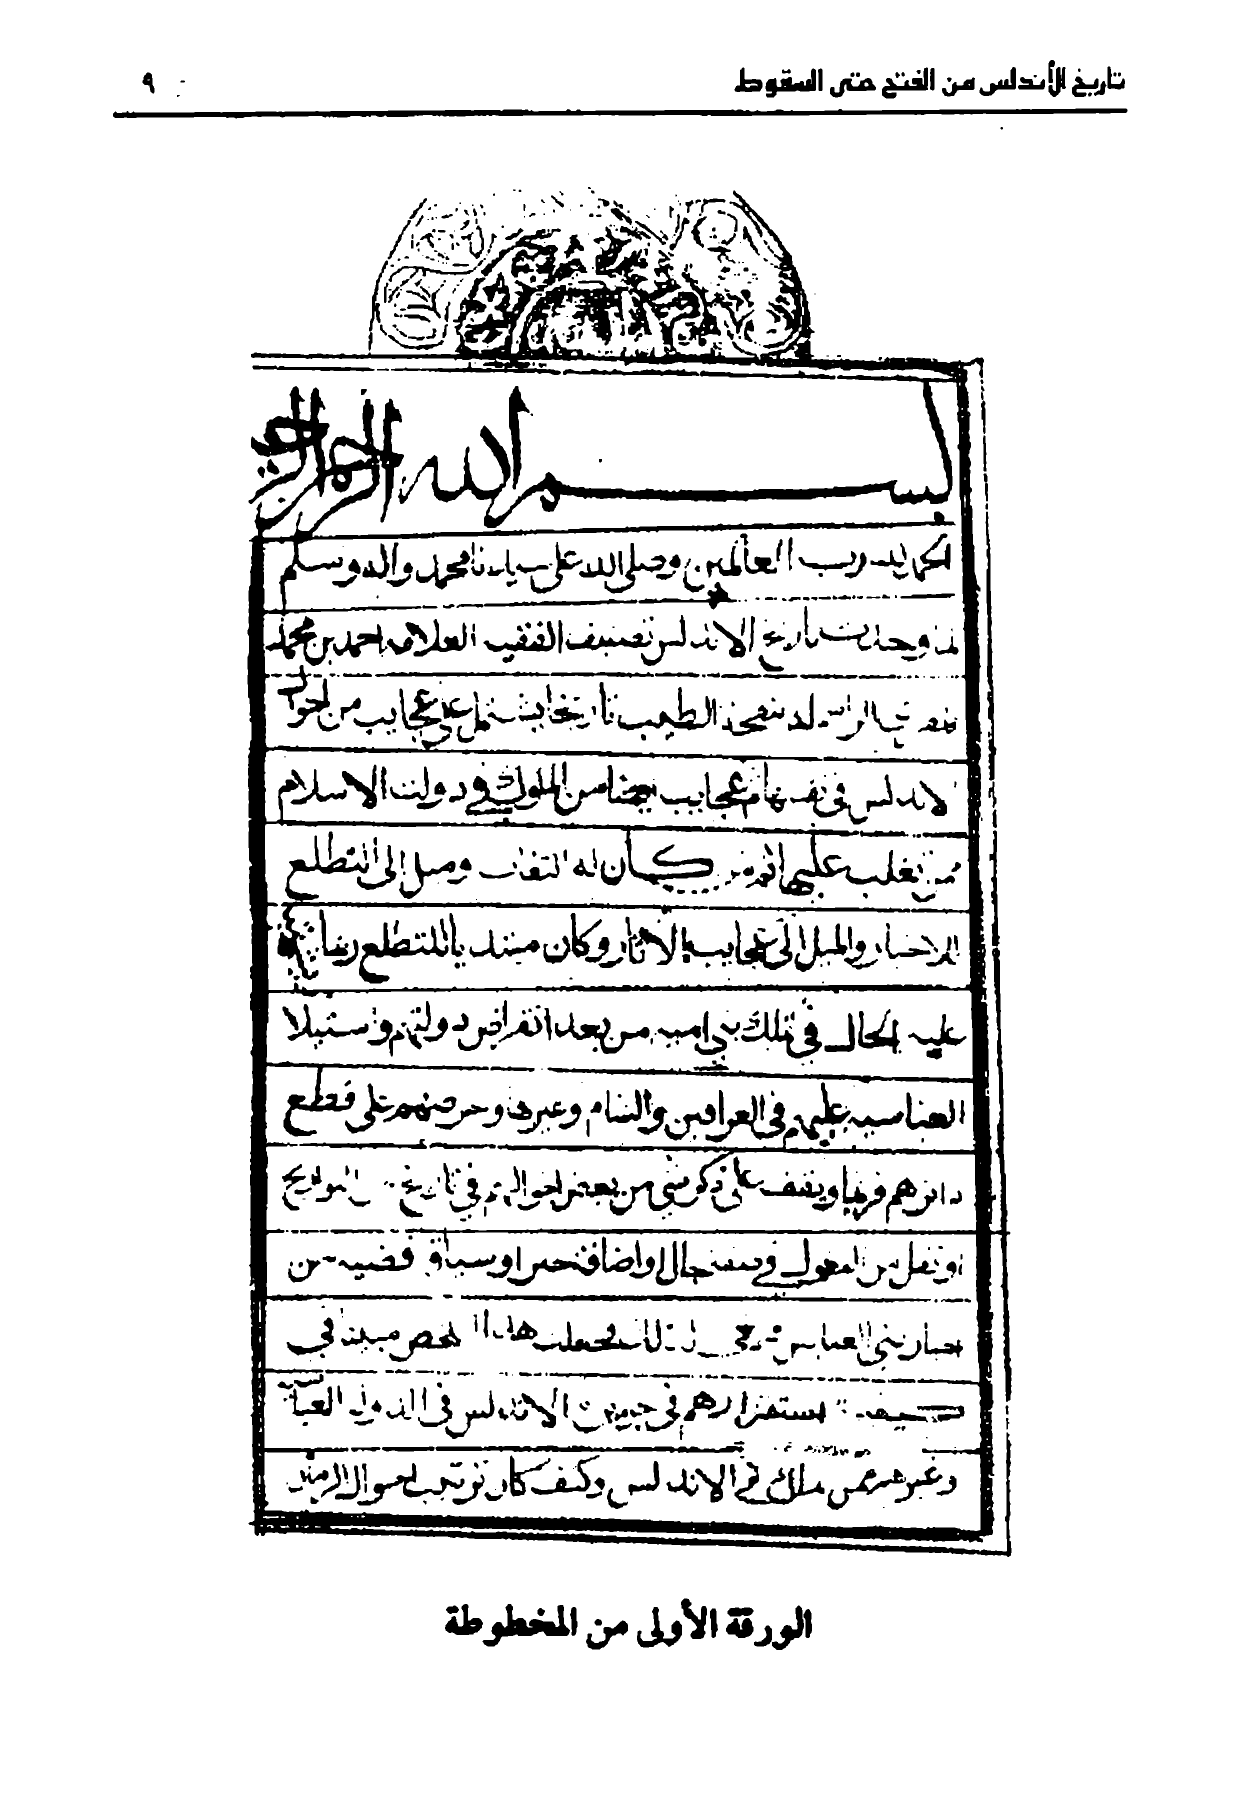 تاريخ الأندلس من الفتح حتى السقوط ٩
بسم الله الرحمن الرحيم
الحمد لله رب العالمين وصلى الله على سيدنا محمد واله وسلم
وجدت تاريخ الاندلس تصنيف الفقيه العلامه احمد بن محمد
نفحة الطيب تاريخا يشتمل على عجايب من احوال
الاندلس في نفسها مع عجايب من الملوك في دولت الاسلام
من تغلب عليها كان له التفات وميل الى التطلع
للاخبار والميل الى عجايب الاثار وكان
عليه الحال في تلك بني اميه من بعد انقراض دولتهم واستيلا
العباسيه عليهم في العراقين والشام وغيرها وحرصهم على قطع
دابرهم فربما ويقف على ذكر شي من بعض احوالهم في تاريخ من التواريخ
او نقل من او اضافة او سياق قضيه من
اخبار بني العباس فجعلت هذا الملخص مبينا في
استقرارهم في جزيرة الاندلس في الدولة العباسيه
وغيرهم من ملك في الاندلس وكيف كان ترتيب احوال
الورقة الأولى من المخطوطة